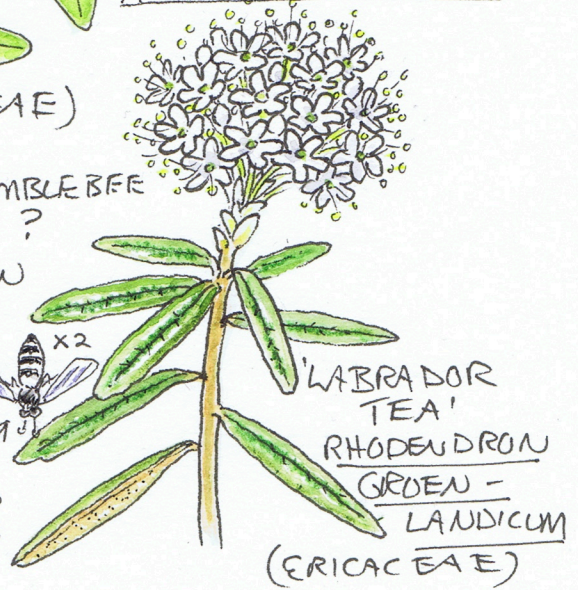 AE)
MBLEBEE
?
N
x2
'LABRADOR
TEA'
RHODENDRON
GROEN-
LANDICUM
(ERICACEAE)